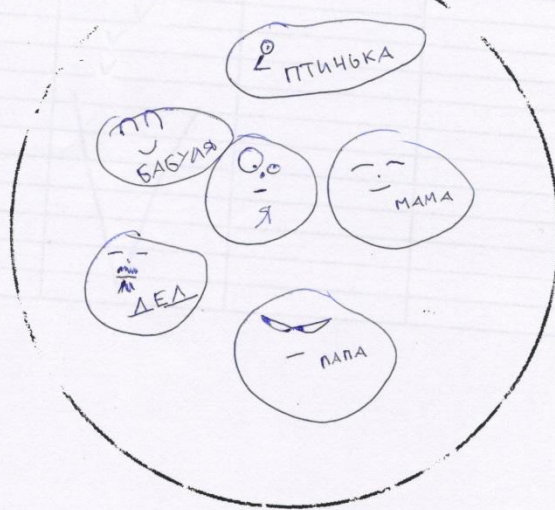 ПТИЧЬКА
БАБУЛЯ
Я
МАМА
ДЕД
ПАПА